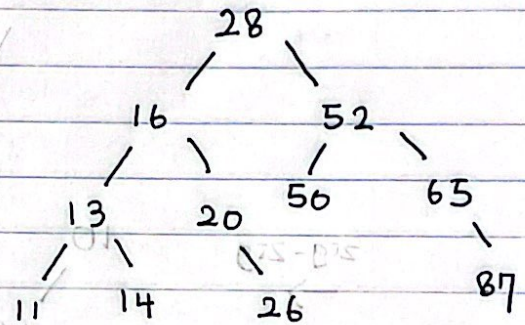 28
16 52
13 20 50 65
11 14 26 87